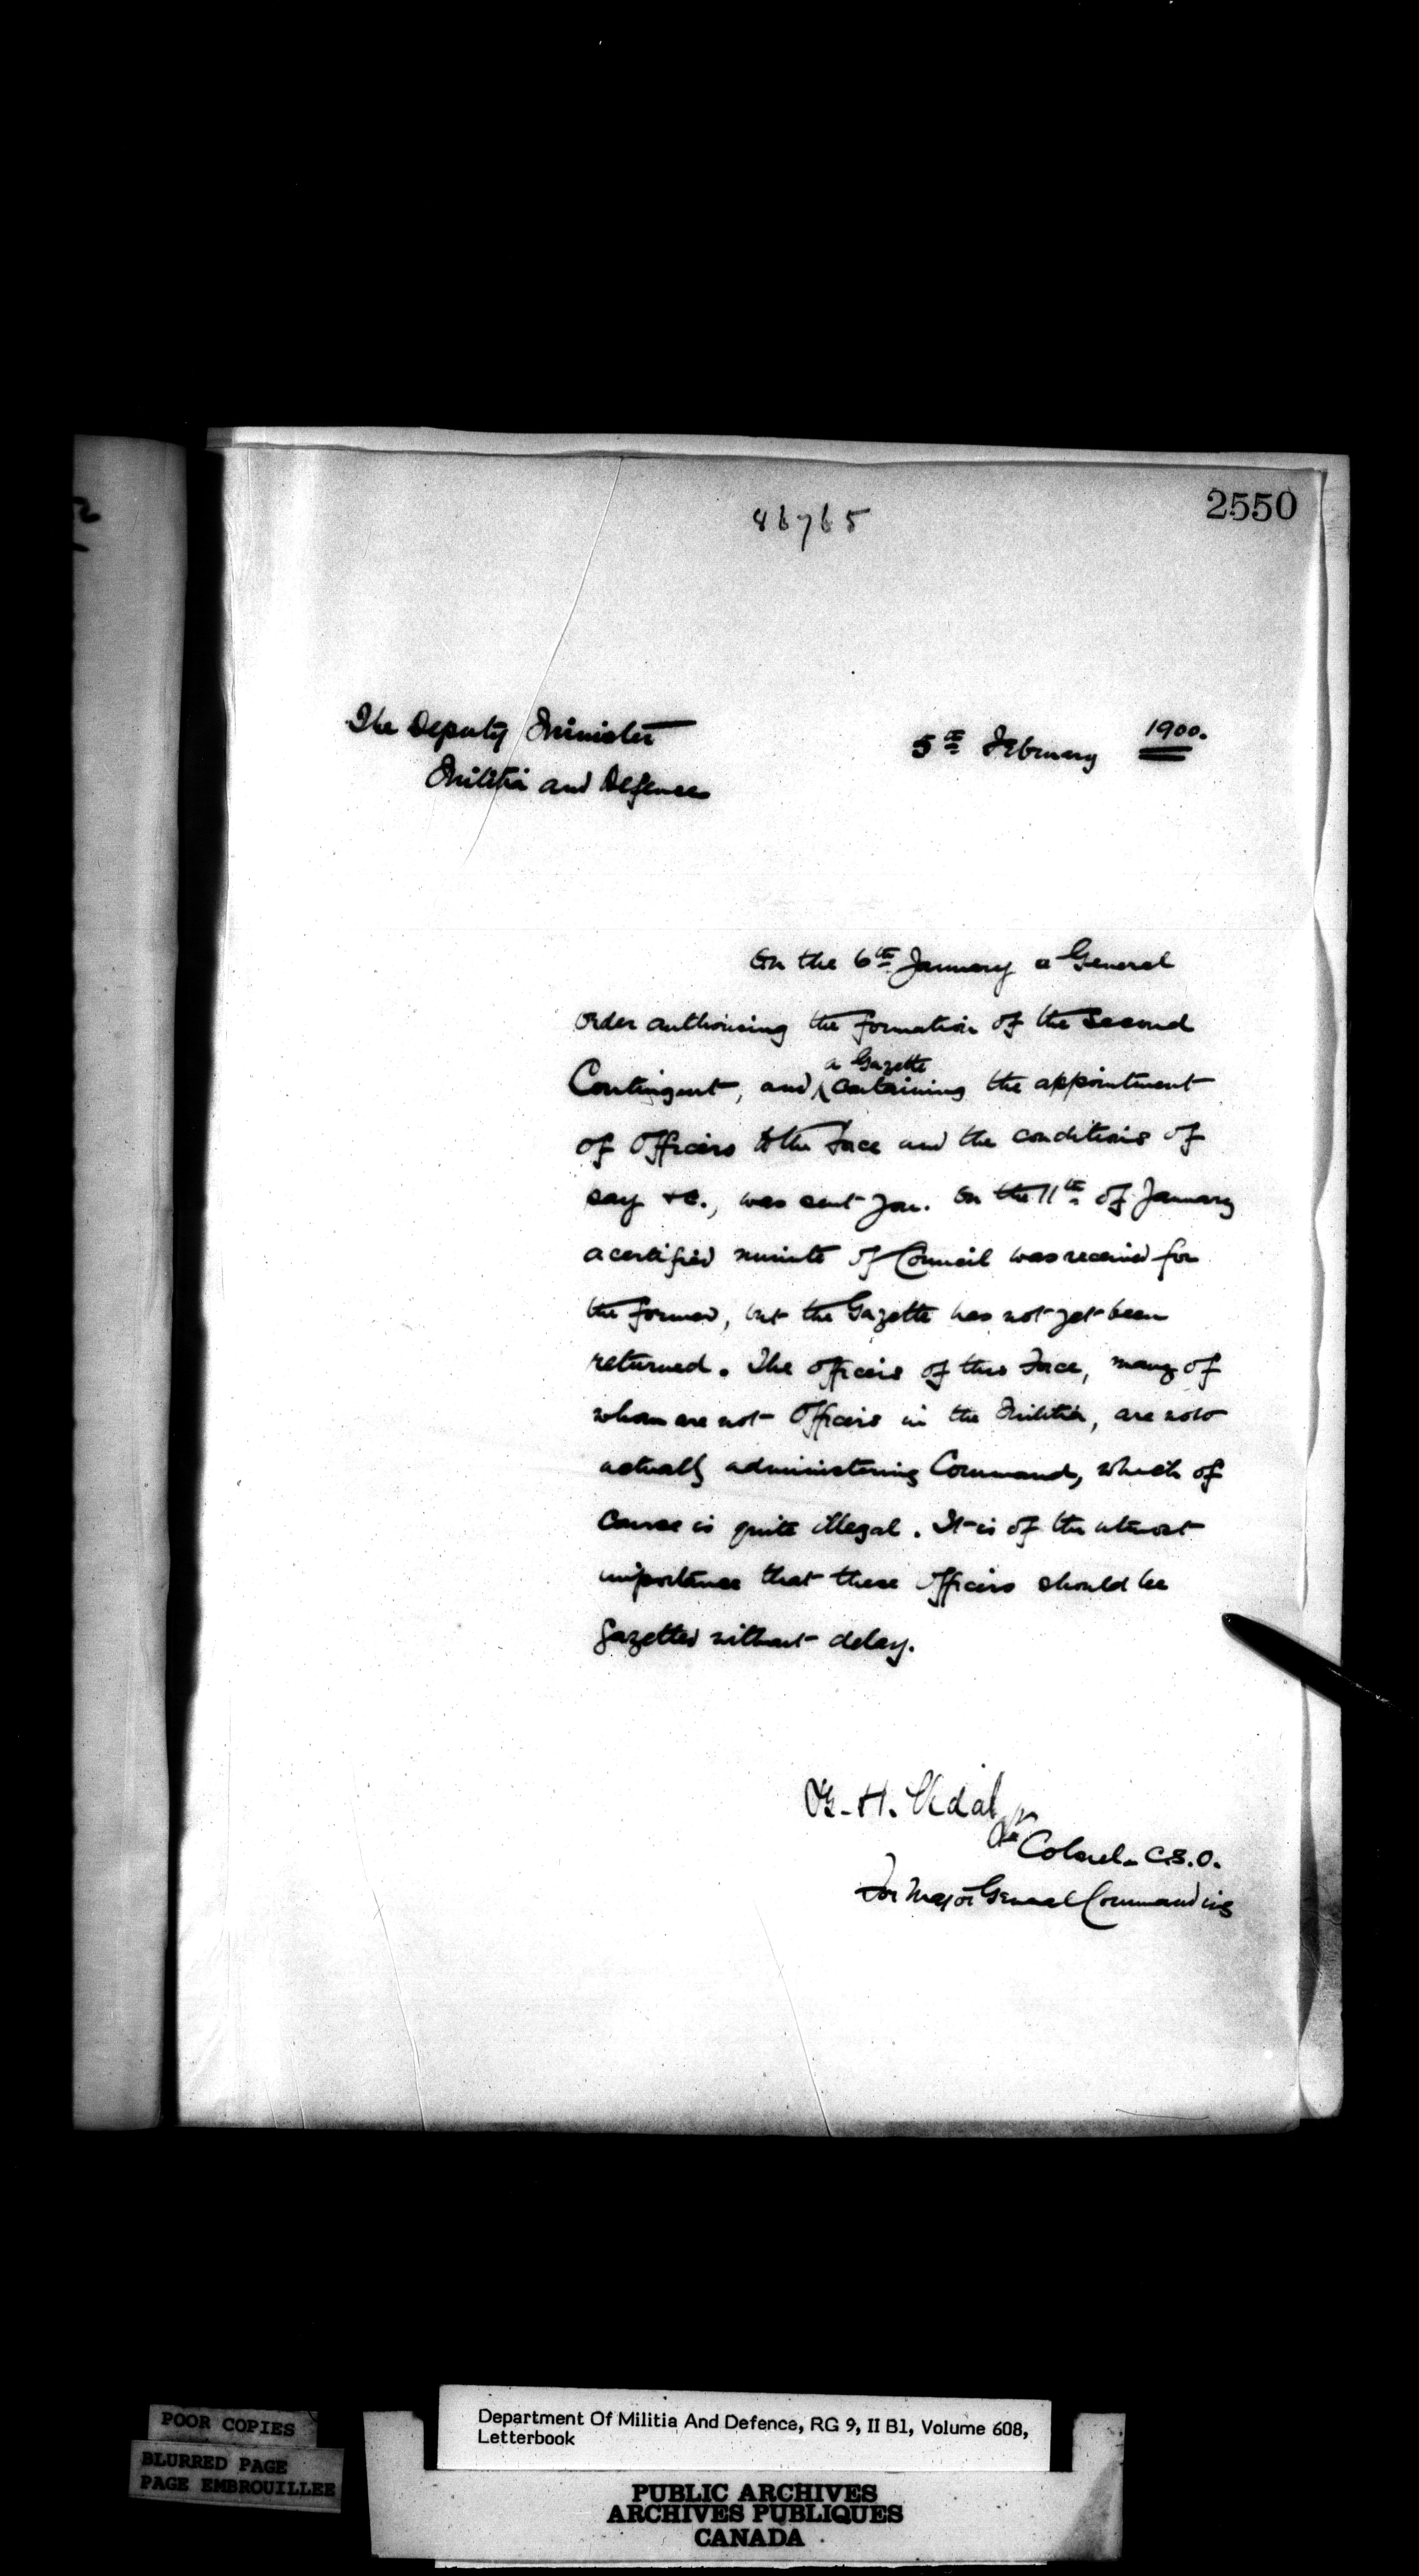 2550
86765
The Deputy Minister
Militia and Defence
5th February 1900.
On the 6th January a General
order authorising the formation of the second
a Gazette
Contingent, and containing the appointment
of Officers to the Force and the conditions of
pay &c., was sent you. On the 11th of January
a certified minute of Council was received for
the former, but the Gazette has not yet been
returned. The officers of this Force, many of
whom are not Officers in the Militia, are now
actually administering Command, which of
course is quite illegal. It is of the utmost
importance that these officers should be
gazetted without delay.
B. H. Vidal
Lt Colonel. C.S.O.
For Major General Commanding
POOR COPIES
BLURRED PAGE
PAGE EMBROUILLEE
Department Of Militia And Defence, RG 9, II B1, Volume 608,
Letterbook
PUBLIC ARCHIVES
ARCHIVES PUBLIQUES
CANADA